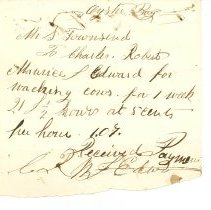 Oyster Bay
Mr S Townsend
To Charles, Robert
Maurice & Edward for
watching cows for 1 week
21 1/2 hours at 5 cents
per hour 1.07.
Received Payment